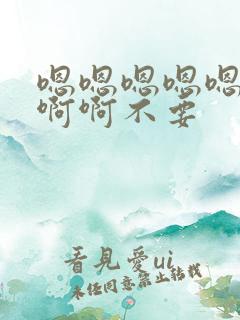 嗯嗯嗯嗯嗯
啊啊不要
看見愛ui
未经同意禁止转载